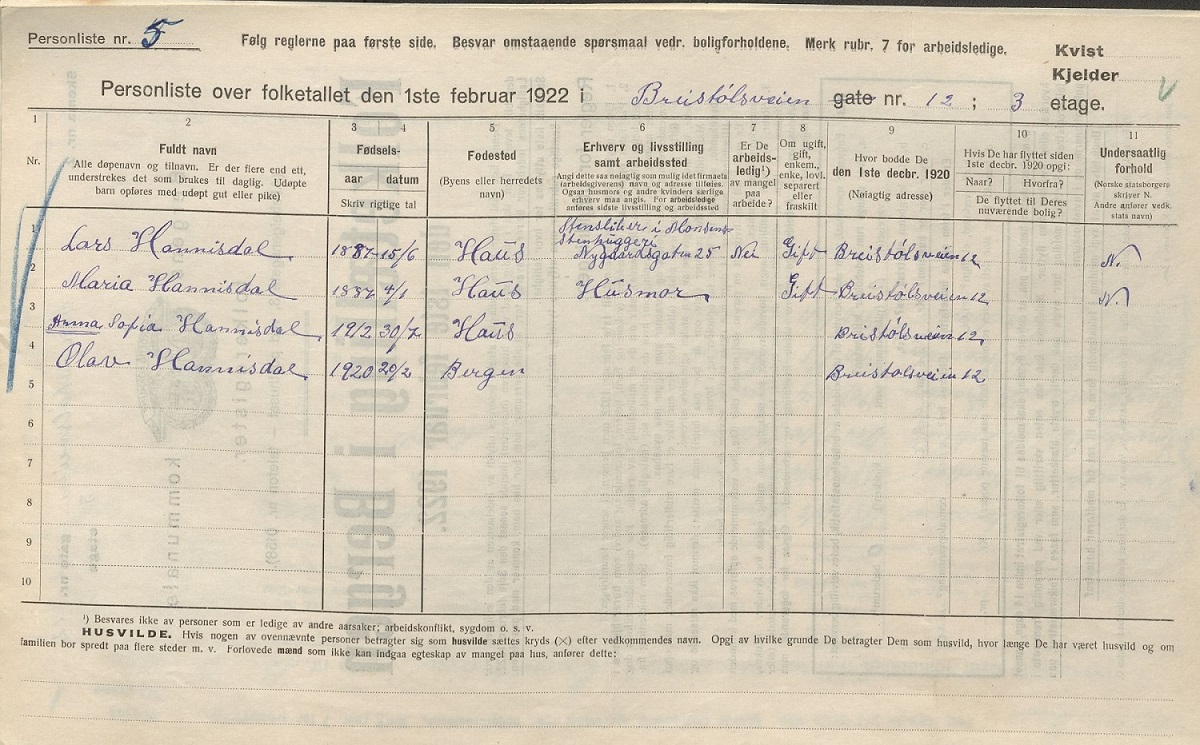 Personliste nr. 5
Følg reglerne paa første side. Besvar omstaaende spørsmaal vedr. boligforholdene. Merk rubr. 7 for arbeidsledige.
Kvist
Kjelder
Personliste over folketallet den 1ste februar 1922 i Breistølsveien gate nr. 12 ; 3 etage.
1
Nr.
2
Fuldt navn
Alle døpenavn og tilnavn. Er der flere end ett,
understrekes det som brukes til daglig. Udøpte
barn opføres med udøpt gut eller pike)
3 4
Fødsels-
aar datum
Skriv rigtige tal
5
Fødested
(Byens eller herredets
navn)
6
Erhverv og livsstilling
samt arbeidssted
Angi dette saa nøiagtig som mulig idet firmaets
(arbeidsgiverens) navn og adresse tilføies.
Ogsaa husmors og andre kvinders særlige
erhverv maa angis. For arbeidsledige
anføres sidste livsstilling og arbeidssted
7
Er De
arbeids-
ledig¹)
av mangel
paa
arbeide?
8
Om ugift,
gift,
enkem.,
enke, lovl.
separert
eller
fraskilt
9
Hvor bodde De
den 1ste decbr. 1920
(Nøiagtig adresse)
10
Hvis De har flyttet siden
1ste decbr. 1920 opgi:
Naar? Hvorfra?
De flyttet til Deres
nuværende bolig?
11
Undersaatlig
forhold
(Norske statsborgere
skriver N.
Andre anfører vedk.
stats navn)
1 Lars Hannisdal 1887 15/6 Haus Stensliker i Monsens
Stenhuggeri
Nygaardsgaten 25 Nei Gift Breistølsveien 12 N.
2 Maria Hannisdal 1887 4/1 Haus Husmor Gift Breistølsveien 12 N
3 Anna Sofia Hannisdal 1912 30/7 Haus Breistølsveien 12
4 Olav Hannisdal 1920 20/2 Bergen Breistølsveien 12
5
6
7
8
9
10
¹) Besvares ikke av personer som er ledige av andre aarsaker; arbeidskonflikt, sygdom o. s. v.
HUSVILDE. Hvis nogen av ovennævnte personer betragter sig som husvilde sættes kryds (×) efter vedkommendes navn. Opgi av hvilke grunde De betragter Dem som husvild, hvor længe De har været husvild og om
familien bor spredt paa flere steder m. v. Forlovede mænd som ikke kan indgaa egteskap av mangel paa hus, anfører dette: